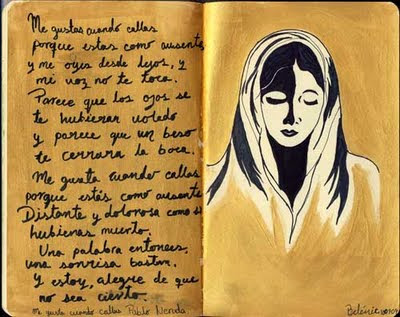 Me gustas cuando callas
porque estas como ausente
y me oyes desde lejos, y
mi voz no te toca.
Parece que los ojos se
te hubieran volado
y parece que un beso
te cerrara la boca.
Me gusta cuando callas
porque estás como ausente
Distante y dolorosa como si
hubieras muerto.
Una palabra entonces,
una sonrisa bastan.
Y estoy, alegre de que
no sea cierto.
Me gusta cuando callas Pablo Neruda.